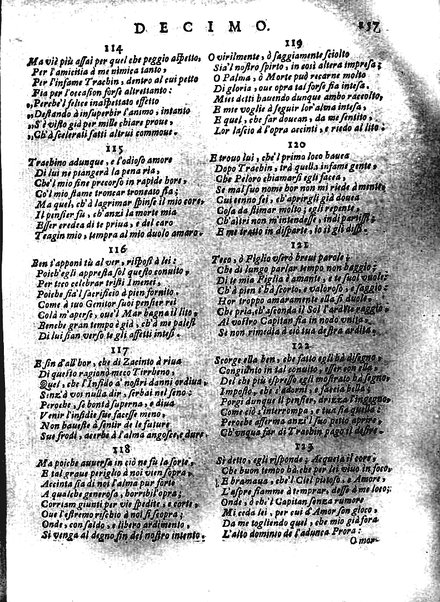 DECIMO. 237
114
Ma viè più assai per quel che peggio aspetto,
Per l'amicitia à me nimica tanto,
Per l'infame Trachin, dentro al cui petto
Fia per l'occasion forse altrettanto:
Perche'l felice inaspettato effetto
Destando à insuperbir l'animo, intanto
S'è visto già per mille chiare prove,
Ch'à scelerati fatti altrui commove.
115
Trachino adunque, e l'odioso amore
Di lui ne piangerà la pena ria,
Che'l mio fine precorso in rapide hore,
Co'l mio stame troncar troncato fia;
Ma quel, ch'à lagrimar spinse il mio core
Il pensier fù, ch'anzi la morte mia
Esser credea di te priva, e del caro
Teagin mio, tempra al mio duolo amaro.
116
Ben t'apponi tù al ver, rispose à lei:
Poich'egli appresta sol questo conuito,
Per teco celebrar tristi Imenei,
Poiche fia'l sacrificio à pien fornito.
Come à tuo Genitor suoi pensier rei
Colà m'aperse, oue'l Mar bagna il lito,
Benche gran tempo è già, ch'à me palesi
Di lui fian verso te gli affetti intesi.
117
E fin d'all'hor, che di Zacinto à riua
Di questo ragionò meco Tirreno,
Quel, che l'Infido à nostri danni ordiua,
Senz'à voi nulla dir, serbai nel seno:
Peroche, sì bontà superna, e diua
Venir l'insidie sue facesse meno,
Non haueste à sentir de le future
Sue frodi, acerbe à l'alma angosce, e dure
118
Ma poiche auuersa in ciò ne fù la sorte,
E tal graue periglio à noi vien sopra,
Accinta sia di noi l'alma pur forte
A qualche generosa, horribil opra;
Corriam giunti per vie spedite, e corte,
Oue l'estremo rischio à noi si scopra;
Onde, con saldo, e libero ardimento,
Si venga al degno fin del nostro intento.
119
O virilmente, ò saggiamente sciolto
Sia'l nostro spirto, in così altera impresa;
O Palma, ò Morte può recarne molto
Di gloria, oue opra tal forse fia intesa.
Miei detti hauendo dunque ambo raccolto,
E me voglie à seguir lor'alma intesa,
E quel, che far doucan, da me sentito,
Lor lascio à l'opra accinti, e riedo al lito.
120
E trouo lui, che'l primo loco hauea
Dopo Trachin, trà quella infame gente,
Che Peloro chiamarsi egli facea,
Se mal suo nome hor non mi riede à mente;
Cui tenno sei, ch'aprirgli già douea
Cosa da stimar molto; egli repente,
Ch'altri non m'intendesse, indi partissi,
E me tratto in disparte, io sì gli dissi.
121
Teco, ò Figlio vserò breui parole;
Che di lungo parlar tempo non haggio;
Di te mia Figlia è amante, e te suol vuole:
Ch'à pien t'hà scorto, e valoroso, e saggio:
Hor troppo amaramente ella si duole,
Che pria, ch'ascenda il Sol l'ardito raggio,
Al vostro Capitan fia in nodo vnita,
Se non rimedia à ciò tua destra ardita.
122
Scorge ella ben, che fatto egli hà disegno
Congiunto in tal conuito, esser con ella,
Del che più espresso egli mostrato hà segno,
Imposto, che s'adorni, e faccia bella,
Porgi dunque il pensier, drizza l'ingegno,
Come ciò, s'interrompa, e tua fia quella:
Peroche afferma anzi l suo petto aprire,
Ch'vnqua far di Trachin pago il desire.
123
Sì detto, egli risponde; Acqueta il core,
Che buon tempo hà che per lei viuo in foco,
E bramaua, che'l Ciel pietoso, e Amore,
L'aspre fiamme à temprar, desse à me loco;
Onde, ò che'l Capitan senza rumore
Mi ceda lei, per cui d'Amor son gioco,
Da me togliendo quel, che mio già fora
L'alto dominio de l'adunca Prora:
O mor-